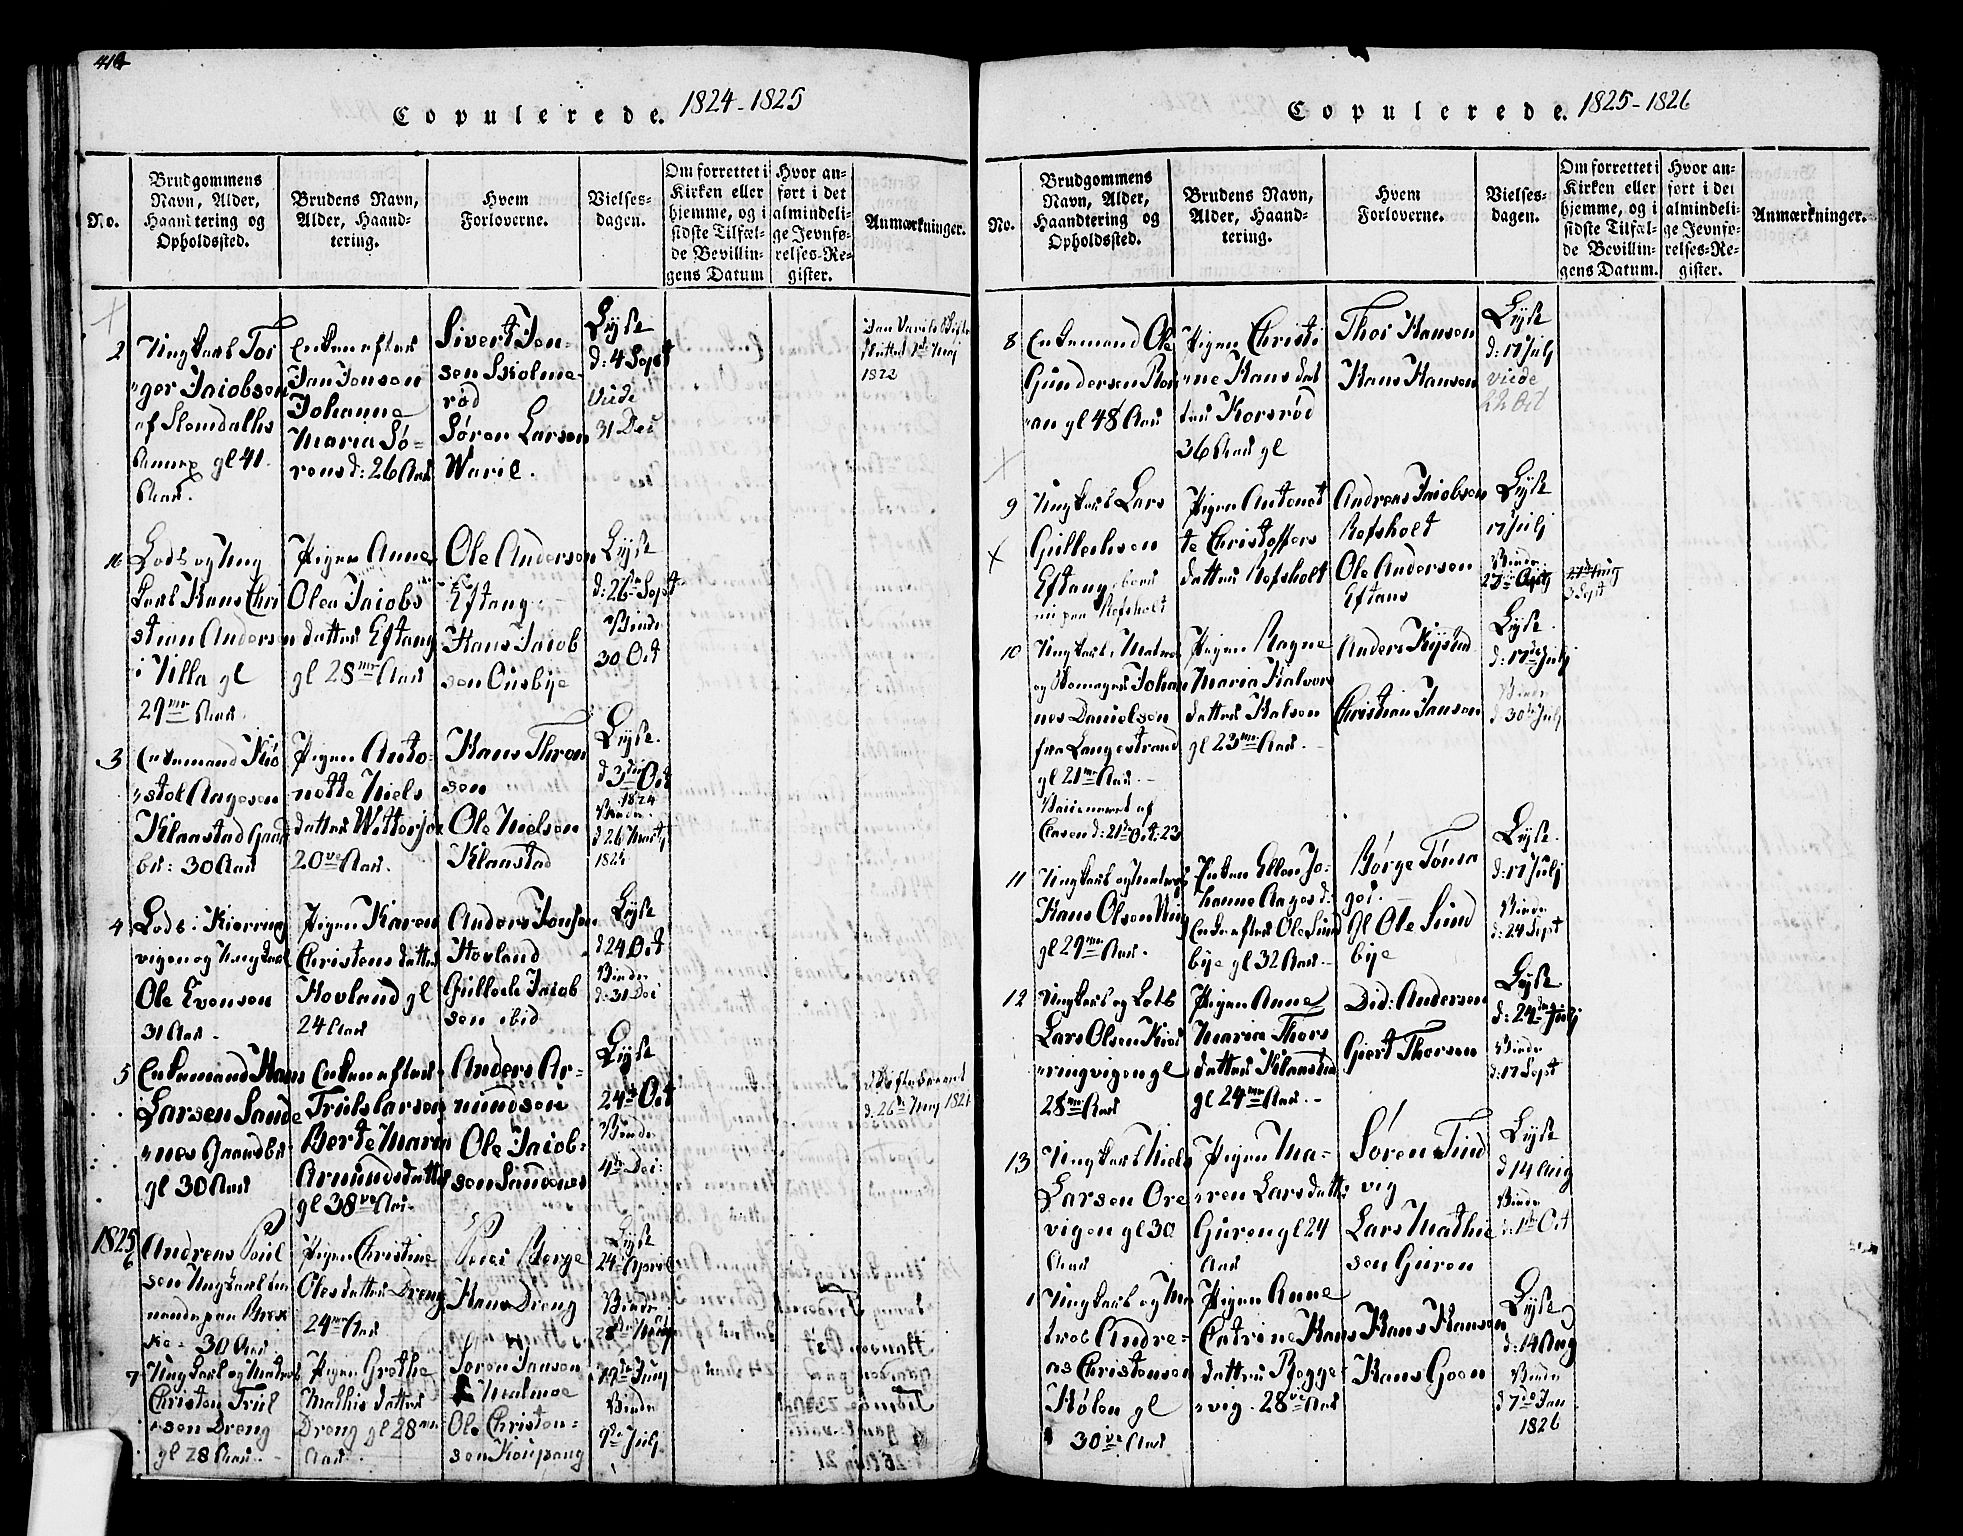 414
Copulerede. 1824-1825
No.
Brudgommens
Navn, Alder,
Haandtering og
Opholdssted.
Brudens Navn,
Alder, Haand-
tering.
Hvem
Forloverne.
Vielses-
dagen.
Om forrettet i
Kirken eller
hjemme, og i
sidste Tilfæl-
de Bevillin-
gens Datum
Hvor an-
ført i det
almindeli-
ge Jevnfø-
relses-Re-
gister.
Anmærkninger.
2
Ungkarl Tor
ger Jacobsen
af Slemdahls
Annex gl 41
Aar.
Enken efter
Jan Jensen
Johanne
Maria Sø-
rensd: 26 Aar
Sivert Jen-
sen Skolme-
rød
Søren Larsen
Waril.
Lyste
d: 4 Sept
Viede
31 Dec
1822
16
Lods og Ung
karl Hans Chri
stian Andersen
i Nilla gl
29 Aar.
Pigen Anne
Olea Jacobs
datter Eftang
gl 28 Aar
Ole Andersen
Eftang
Hans Jacob
sen Ousbye
Lyste
d: 26 Sept
Viede
30 Oct
3
Enkemand Kiø
stol Aagesen
Klaastad Gaard
br: 30 Aar
Pigen Anto-
nette Niels
datter Wetterjor
20 Aar.
Hans Thron
sen
Ole Nielsen
Klaastad
Lyste
d 3 Oct
1824
Viede
d: 26 Marti
1825
4
Lods i Kierring
vigen og Ungkarl
Ole Evensen
31 Aar.
Pigen Karen
Christens datter
Hovland gl
24 Aar
Anders Jensen
Hovland
Gulleik Jacob
sen ibid
Lyste
d 24 Oct
Viede
d: 31 Dec
5
Enkemand Hans
Larsen Sande
nes Gaardbr
gl 30 Aar
Enken efter
Truls Larsen
Berte Maria
Amundsdatter
gl 38 Aar.
Anders Ar-
nundsen
Ole Jacob-
sen Sandenes
Lyste
24 Oct
Viede
4 Dec:
1825
6
Andreas Poul
sen Ungkarl
30 Aar
Pigen Christine
Olesdatter Dreng
24 Aar
Peter Berge
Hans Dreng
Lyste
24 April
Viede
28
7
Ungkarl og Matros
Christen Trul
sen Dreng
gl 28 Aar.
Pigen Grethe
Mathisdatter
Dreng gl 28
Aar.
Søren Jansen
Malmøe
Ole Christen-
sen Koupang
19 Juny
Viede
9 July
Copulerede. 1825-1826
No.
Brudgommens
Navn, Alder,
Haandtering og
Opholdssted.
Brudens Navn,
Alder, Haand-
tering.
Hvem
Forloverne.
Vielses-
dagen.
Om forrettet i
Kirken eller
hjemme, og i
sidste Tilfæl-
de Bevillin-
gens Datum.
Hvor an-
ført i det
almindeli-
ge Jevnfø-
relses-Re-
gister.
Anmærkninger.
8
Enkemand Ole
Gundersen
gl 48 Aar
Pigen Christi
ne Hansdat
ter Korsrød
36 Aar gl
Thor Hansen
Hans Hansen
Lyste
d: 17 July
Viede
22 Oct
9
Ungkarl Lars
Gulleksen
Eftang
Refsholt
Pigen Antonet
te Christoffers
datter Refsholt
Andreas Jacobsen
Refsholt
Ole Andersen
Eftang
Lyste
17 July
Viede
10
Ungkarl, Matros
Johan
nes Danielsen
fra Langestrand
gl 21 Aar.
Claven d: 21 Oct: 23
Pigen Ragne
Maria Halvors
datter Halsen
gl 23 Aar.
Anders
Christian Jansen
Lyste
d: 17 July
Viede
d 30 July
11
Ungkarl og Matros
Hans Olsen
gl 29 Aar.
Enken Ellen Jo-
hanne Aagesd:
Enke efter Ole Sund
bye gl 32 Aar.
Børge Tønsa
ged.
Gl Ole Sund
bye
Lyste
d: 17 July
Viede
d: 24 Sept
12
Ungkarl og Lods
Lars Olsen Kier
ringvigen gl
28 Aar
Pigen Anne
Maria Thors
datter Klaastad
gl 24 Aar.
Did: Andersen
Giert Thorsen
Lyste
d: 24 July
Viede
d: 17 Sept
13
Ungkarl Niels
Larsen Ore
vigen gl 30
Aar
Pigen Ma-
ren Larsdatter
Guren gl 24
Aar
Søren Tind
vig
Lars Mathie
sen Guren
Lyste
d 14 Aug
Viede
1 Oct
1
Ungkarl og Ma
tros Andre-
as Christensen
Hølen gl
30 Aar
Pigen Anne
Catrine Hans
datter Rogge
vig. 28 Aar
Hans Hansen
Hans Goen
Lyste
d: 14 Aug
Viede
d 7 Jan
1826